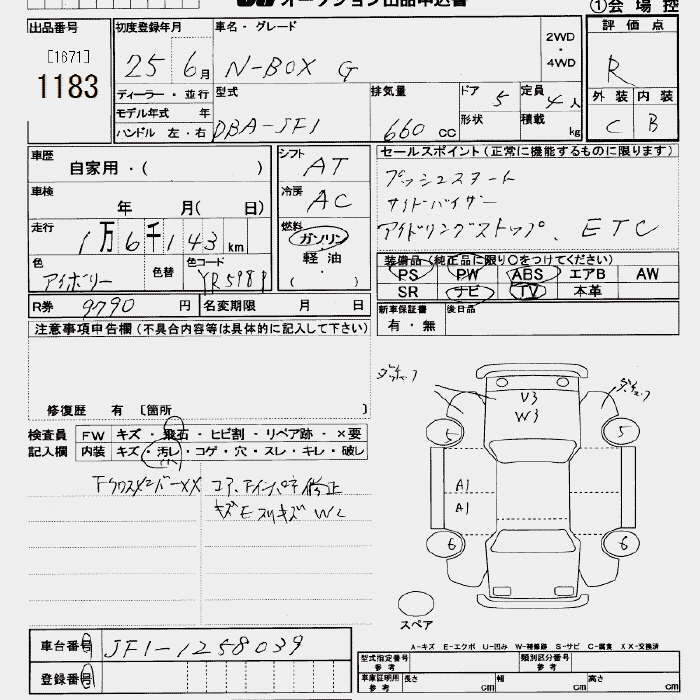 オークション出品申込書
①会場控
出品番号
[1671]
1183
初度登録年月
25年 6月
車名・グレード
N-BOX G
2WD・4WD
評価点
R
外装 内装
C B
ディーラー・並行
モデル年式 年
ハンドル 左・右
型式
DBA-JF1
排気量
660 cc
ドア 5
形状
定員 4人
積載 kg
車歴
自家用・( )
車検
年 月( 日)
走行
1万6千143km
色
アイボリー
色替
色コード
YR598P
シフト
AT
冷房
AC
燃料
ガソリン
軽油
・( )
セールスポイント(正常に機能するものに限ります)
プッシュスタート
サイドバイザー
アイドリングストップ、ETC
装備品(純正品に限り○をつけてください)
PS PW ABS エアB AW
SR ナビ TV 本革
R券 9790 円
名変期限 月 日
新車保証書
有・無
後日品
注意事項申告欄(不具合内容等は具体的に記入して下さい)
修復歴 有 [箇所 ]
検査員記入欄
FW キズ・飛石・ヒビ割・リペア跡・×要
内装 キズ・汚レ・コゲ・穴・スレ・キレ・破レ
FクロスメンバーXX コア、アインパネ修正
キズEスリキズ W2
U3
W3
5 5
A1
A1
6 6
スペア
A-キズ E-エクボ U-凹み W-補修跡 S-サビ C-腐食 XX-交換済
車台番号 JF1-1258039
登録番号
型式指定番号 参考
類別区分番号 参考
車庫証明用 参考
長さ cm 幅 cm 高さ cm